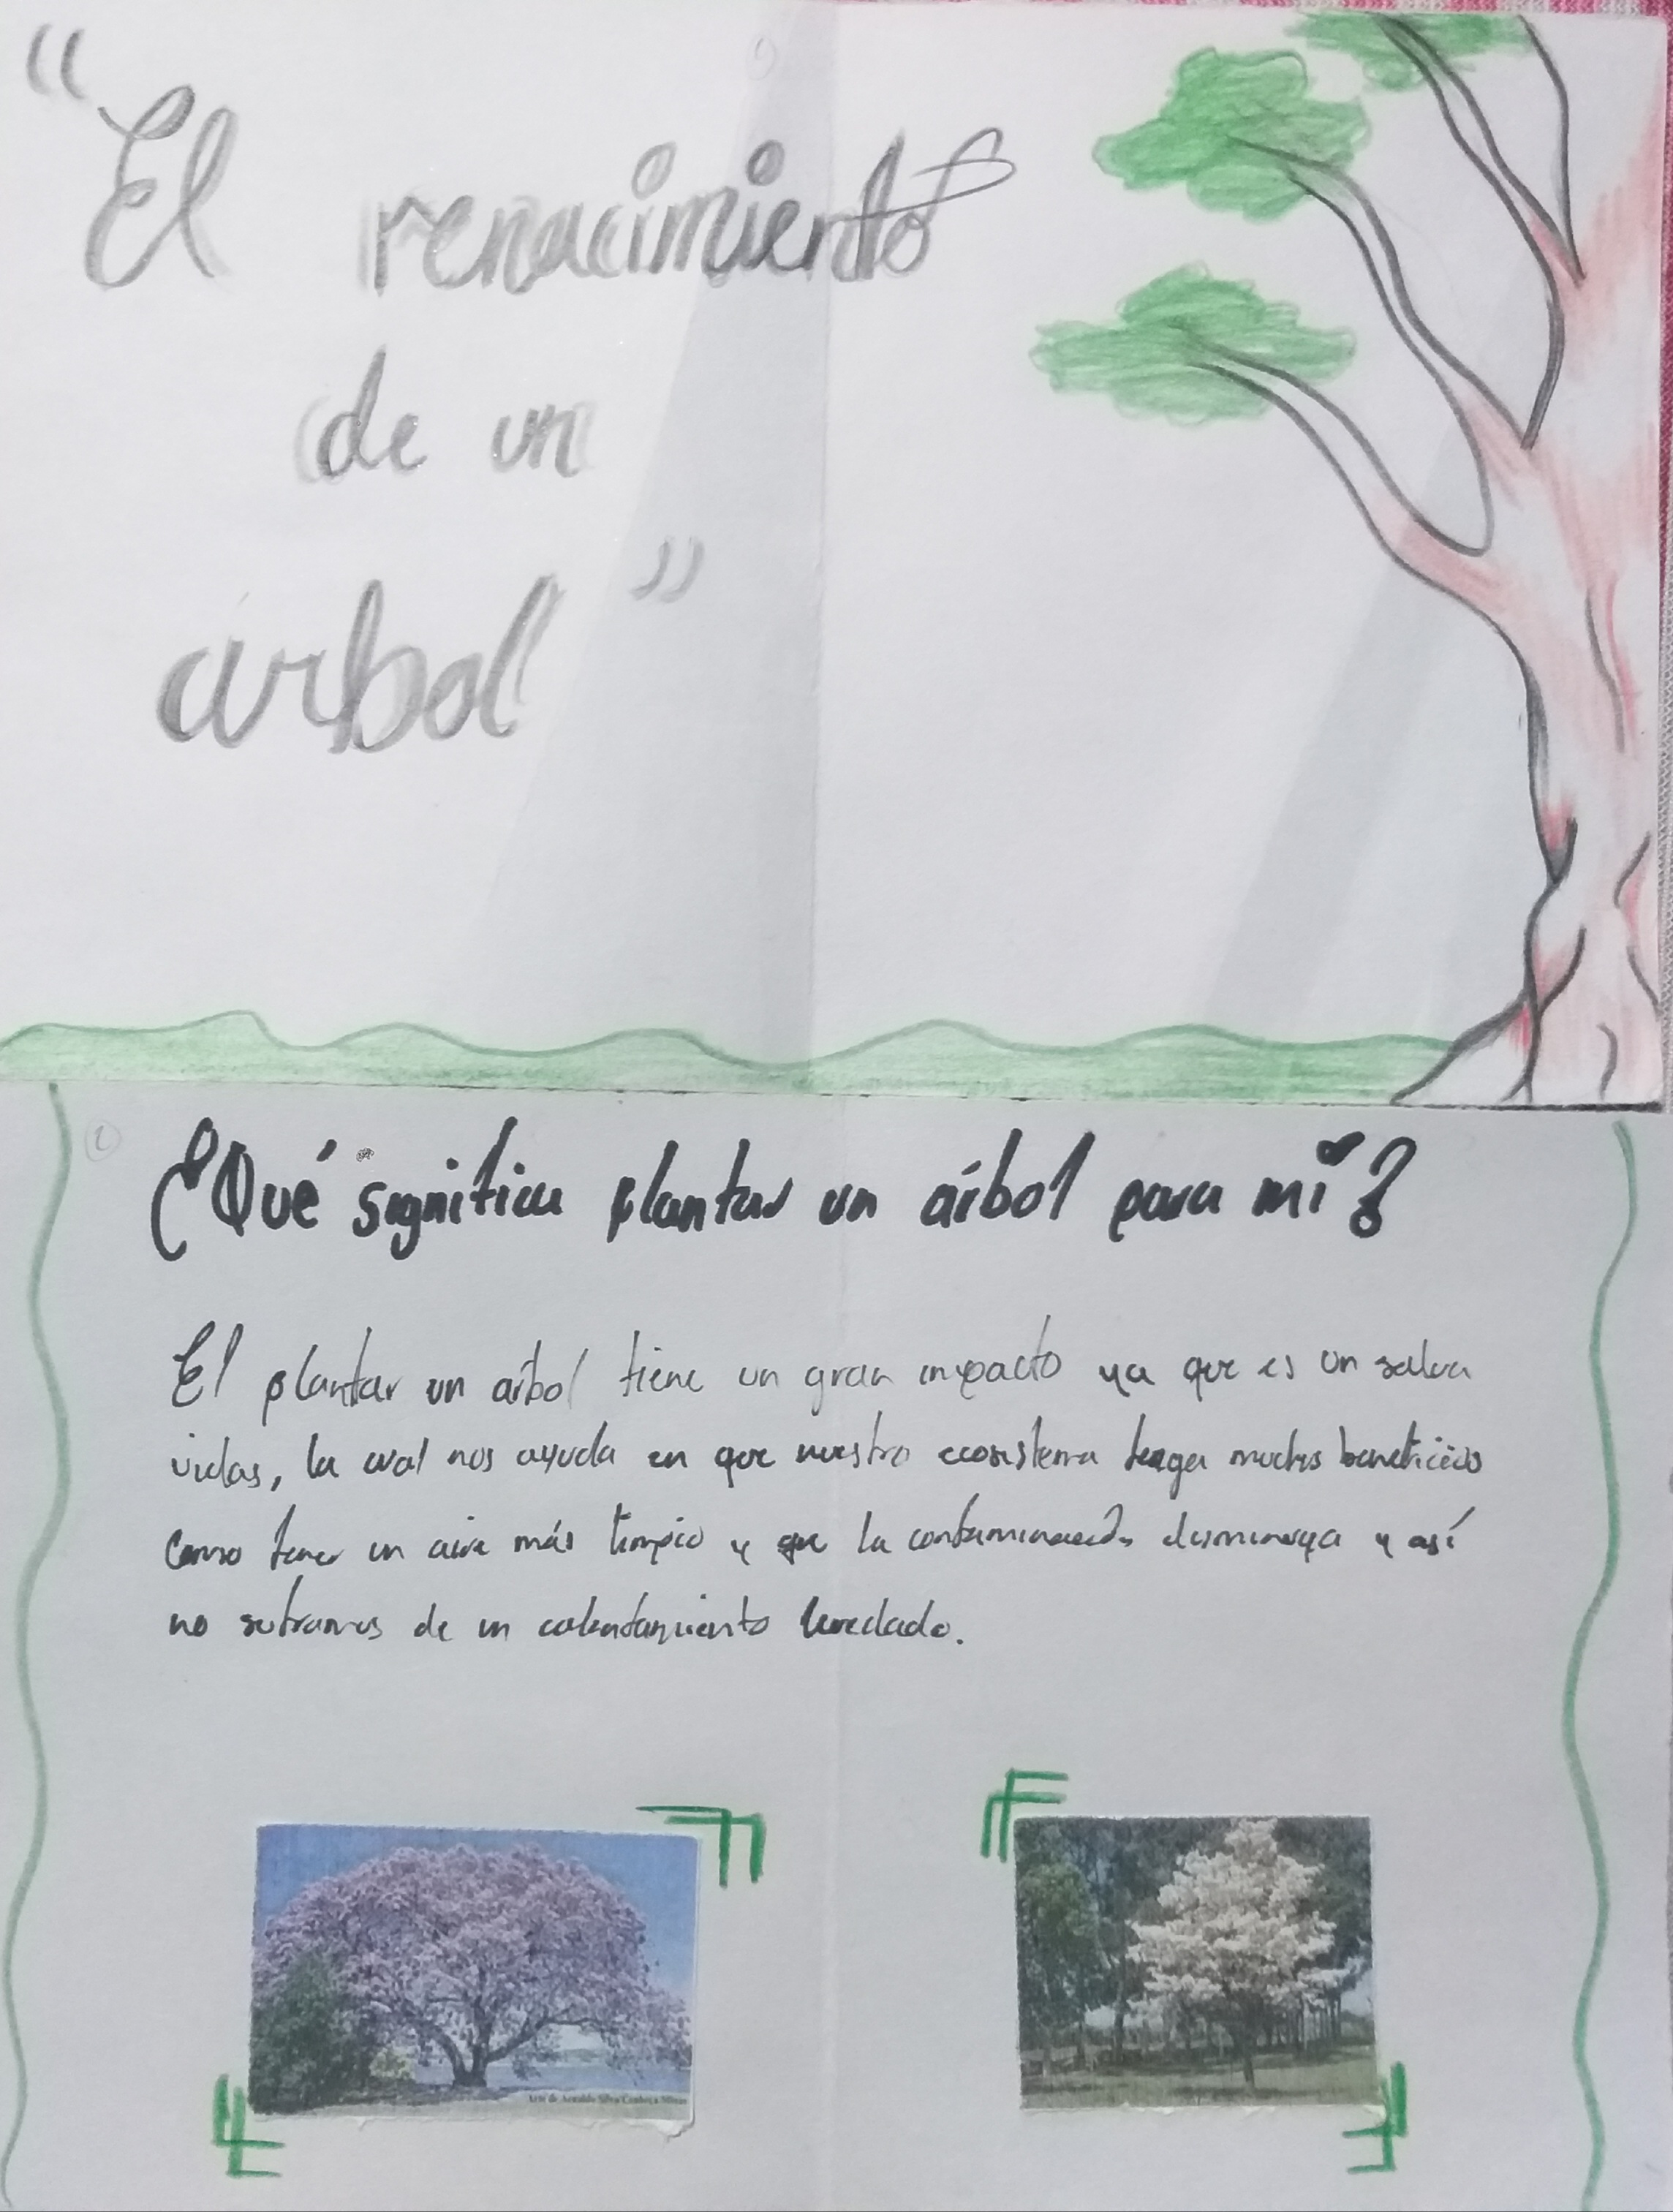 "El renacimiento
de un
arbol"
¿Qué significa plantar un árbol para mi?
El plantar un arbol tiene un gran impacto ya que es un salva
vidas, la cual nos ayuda en que nuestro ecosistema tenga muchos beneficios
como tener un aire más limpio y que la contaminación disminuya y así
no suframos de un calentamiento heredado.